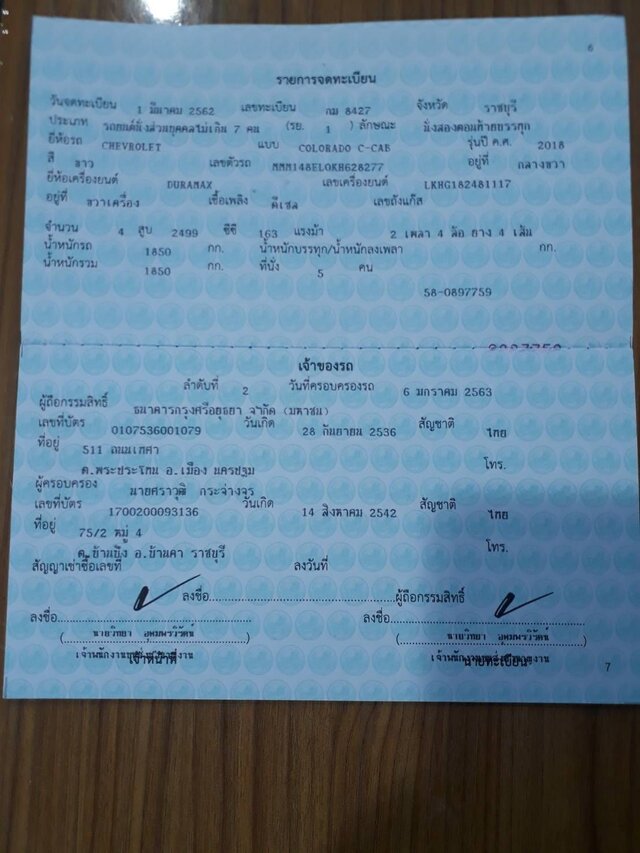 6
รายการจดทะเบียน
วันจดทะเบียน 1 มีนาคม 2562 เลขทะเบียน กม 8427 จังหวัด ราชบุรี
ประเภท รถยนต์นั่งส่วนบุคคลไม่เกิน 7 คน (รย. 1 ) ลักษณะ นั่งสองตอนท้ายบรรทุก
ยี่ห้อรถ CHEVROLET แบบ COLORADO C-CAB รุ่นปี ค.ศ. 2018
สี ขาว เลขตัวรถ MMM148EL0KH628277 อยู่ที่ กลางขวา
ยี่ห้อเครื่องยนต์ DURAMAX เลขเครื่องยนต์ LKHG182481117
อยู่ที่ ขวาเครื่อง เชื้อเพลิง ดีเซล เลขถังแก๊ส
จำนวน 4 สูบ 2499 ซีซี 163 แรงม้า 2 เพลา 4 ล้อ ยาง 4 เส้น
น้ำหนักรถ 1850 กก. น้ำหนักบรรทุก/น้ำหนักลงเพลา กก.
น้ำหนักรวม 1850 กก. ที่นั่ง 5 คน
58-0897759
เจ้าของรถ
ลำดับที่ 2 วันที่ครอบครองรถ 6 มกราคม 2563
ผู้ถือกรรมสิทธิ์ ธนาคารกรุงศรีอยุธยา จำกัด (มหาชน)
เลขที่บัตร 0107536001079 วันเกิด 28 กันยายน 2536 สัญชาติ ไทย
ที่อยู่ 511 ถนนเทศา
ต.พระประโทน อ.เมือง นครปฐม โทร.
ผู้ครอบครอง นายศราวุฒิ กระจ่างจร
เลขที่บัตร 1700200093136 วันเกิด 14 สิงหาคม 2542 สัญชาติ ไทย
ที่อยู่ 75/2 หมู่ 4
ต.บ้านบึง อ.บ้านคา ราชบุรี โทร.
สัญญาเช่าซื้อเลขที่ ลงวันที่
ลงชื่อ ผู้ถือกรรมสิทธิ์
ลงชื่อ ลงชื่อ
(นายวิทยา) (นายวิทยา)
เจ้าหน้าที่ นายทะเบียน
7